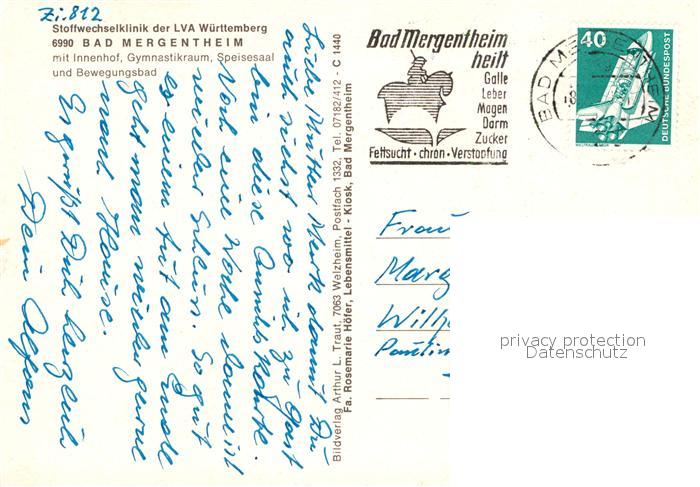 Zi. 812
Stoffwechselklinik der LVA Württemberg
6990 BAD MERGENTHEIM
mit Innenhof, Gymnastikraum, Speisesaal
und Bewegungsbad
Liebe Mutter damit Du
auch siehst wo ich zu Gast
bin diese Ansichtskarte.
Noch eine Woche dann ist
wieder Schluss. So gut
es einem tut am Ende
geht man wieder gerne
nach Hause.
Es grüßt Dich herzlich
Dein Alfons
Bildverlag Arthur L. Traut, 7063 Welzheim, Postfach 1332, Tel. 07182/412 - C 1440
Fa. Rosemarie Höfer, Lebensmittel - Kiosk, Bad Mergentheim
Bad Mergentheim
heilt
Galle
Leber
Magen
Darm
Zucker
Fettsucht · chron · Verstopfung
BAD MERGENTHEIM
40
DEUTSCHE BUNDESPOST
Frau
Marg
Wilh
Paulin
privacy protection
Datenschutz